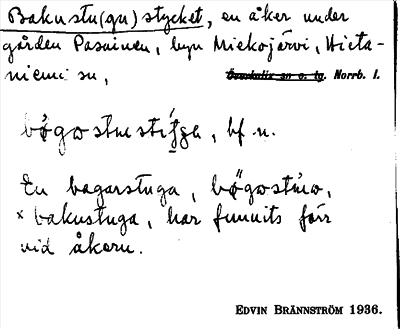 Bakustu(gu)stycket, en åker under
gården Pasainen, byn Miekojärvi, Hieta-
niemi sn,
Överkalix sn o. tg. Norrb. l.
bf. n.
En bagarstuga,
× bakustuga, har funnits förr
vid åkern.
EDVIN BRÄNNSTRÖM 1936.